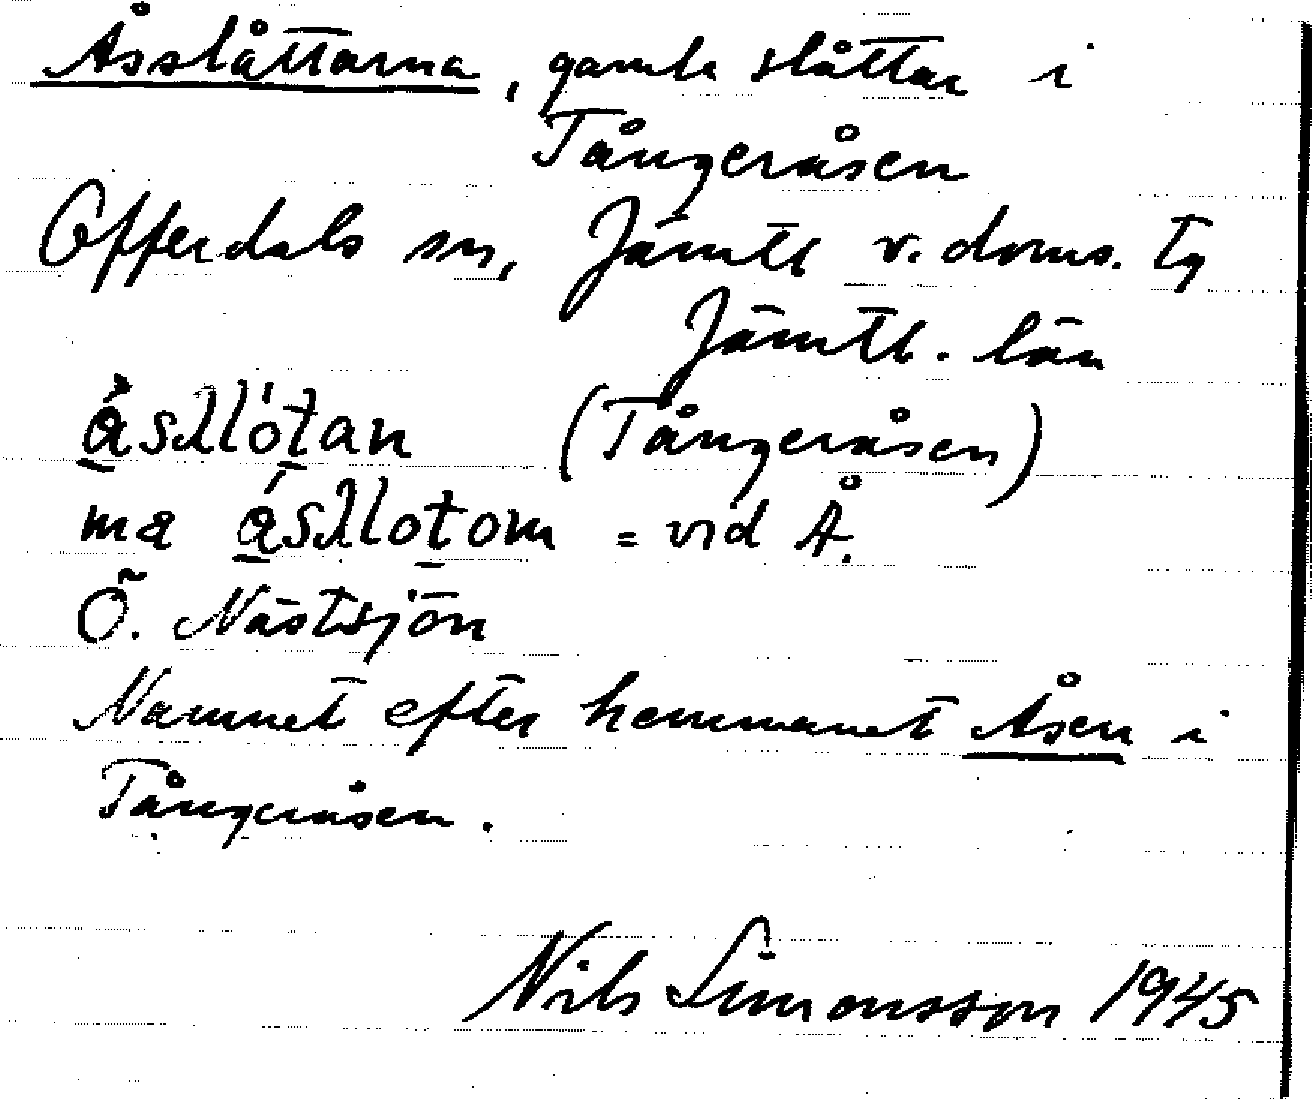 Åsslåttarna, gamla slåttar i
Tångeråsen
Offerdals sn, Jämtl v. doms. tg
Jämtl. län
(Tångeråsen)
= vid Å.
Ö. Nästsjön
Namnet efter hemmanet Åsen i
Tångeråsen.
Nils Simonsson 1945